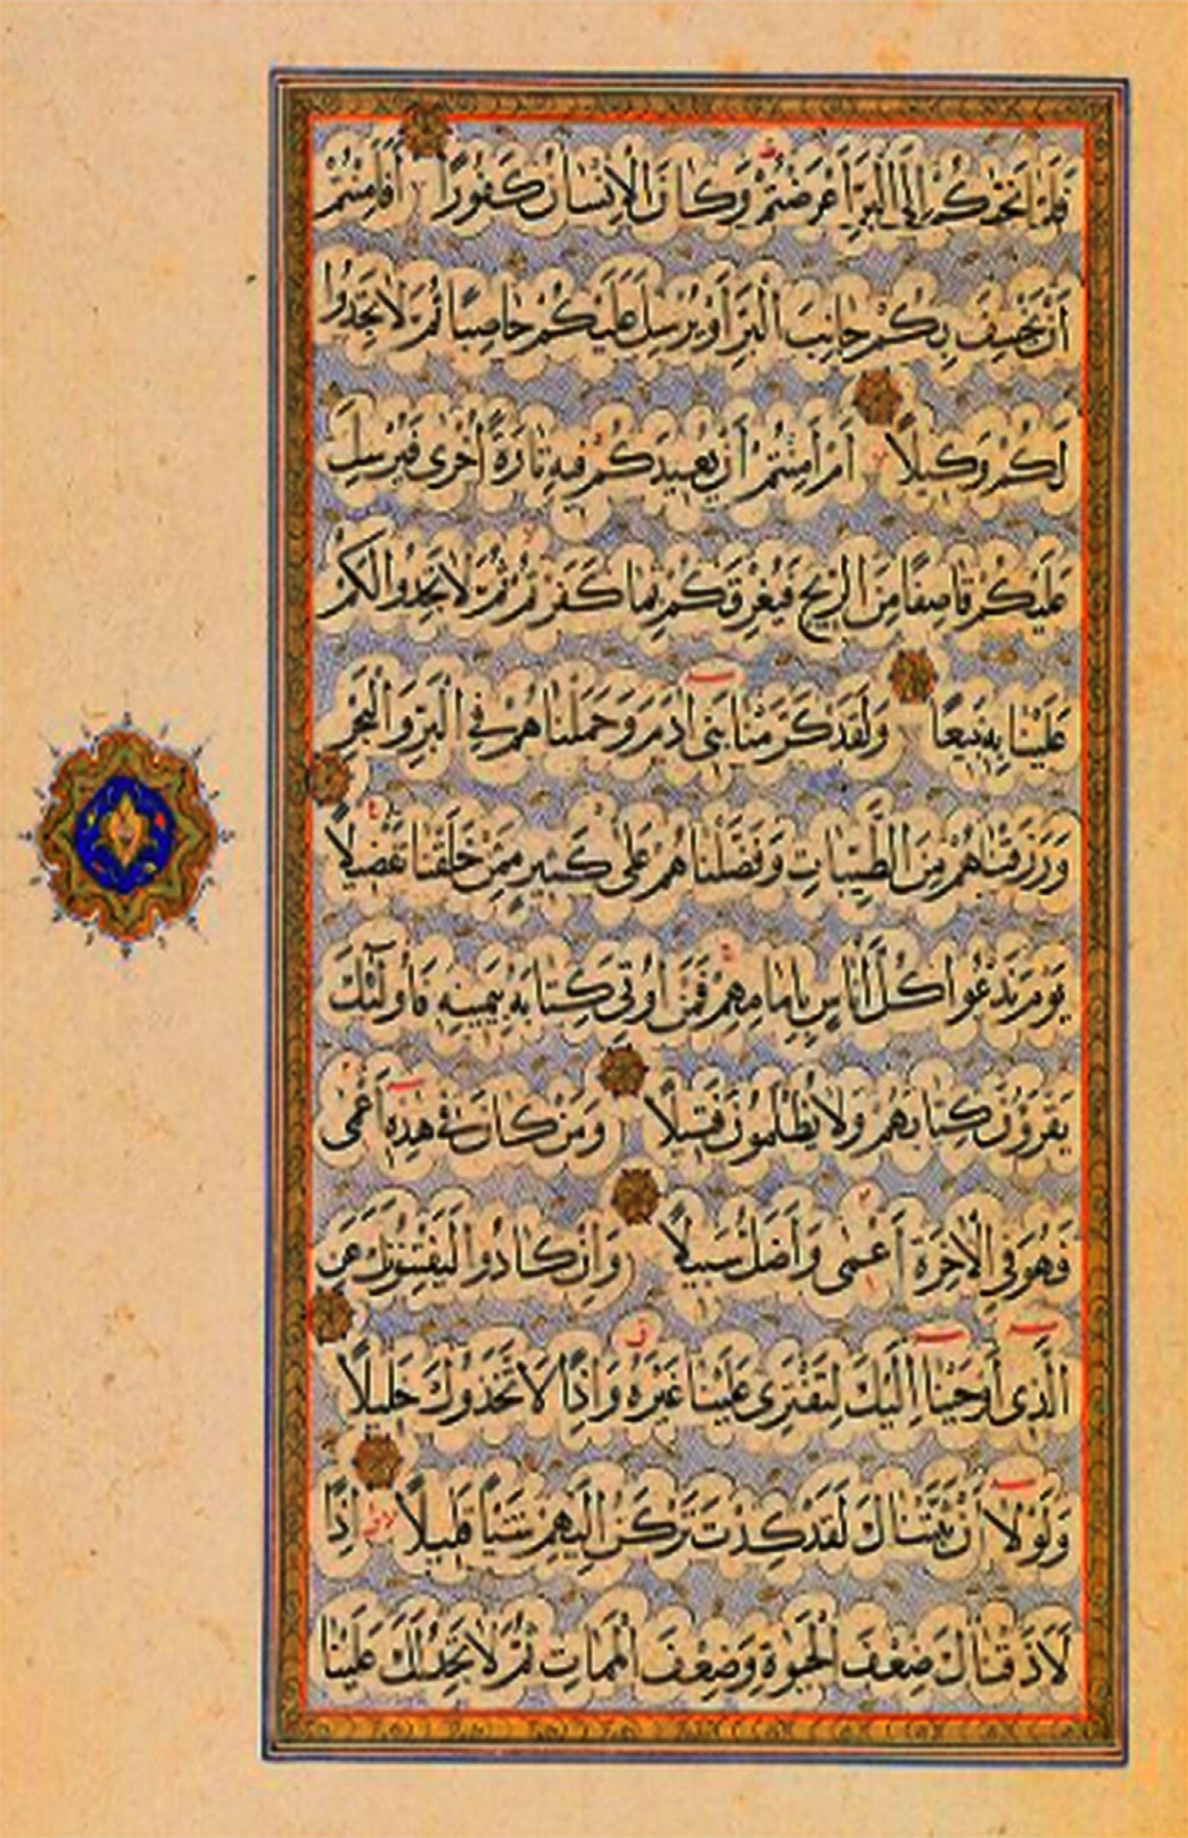 فَلَمَّا نَجّٰكُمْ اِلَى الْبَرِّ اَعْرَضْتُمْ وَكَانَ الْاِنْسَانُ كَفُورًا اَفَاَمِنْتُمْ
اَنْ يَخْسِفَ بِكُمْ جَانِبَ الْبَرِّ اَوْ يُرْسِلَ عَلَيْكُمْ حَاصِبًا ثُمَّ لَا تَجِدُوا
لَكُمْ وَكِيلًا اَمْ اَمِنْتُمْ اَنْ يُعِيدَكُمْ فِيهِ تَارَةً اُخْرٰى فَيُرْسِلَ
عَلَيْكُمْ قَاصِفًا مِنَ الرِّيحِ فَيُغْرِقَكُمْ بِمَا كَفَرْتُمْ ثُمَّ لَا تَجِدُوا لَكُمْ
عَلَيْنَا بِهِ تَبِيعًا وَلَقَدْ كَرَّمْنَا بَنِى اٰدَمَ وَحَمَلْنَاهُمْ فِى الْبَرِّ وَالْبَحْرِ
وَرَزَقْنَاهُمْ مِنَ الطَّيِّبَاتِ وَفَضَّلْنَاهُمْ عَلٰى كَثِيرٍ مِمَّنْ خَلَقْنَا تَفْضِيلًا
يَوْمَ نَدْعُوا كُلَّ اُنَاسٍ بِاِمَامِهِمْ فَمَنْ اُوتِىَ كِتَابَهُ بِيَمِينِهِ فَاُولٰٓئِكَ
يَقْرَؤُنَ كِتَابَهُمْ وَلَا يُظْلَمُونَ فَتِيلًا وَمَنْ كَانَ فِى هٰذِهِ اَعْمٰى
فَهُوَ فِى الْاٰخِرَةِ اَعْمٰى وَاَضَلُّ سَبِيلًا وَاِنْ كَادُوا لَيَفْتِنُونَكَ عَنِ
الَّذِى اَوْحَيْنَا اِلَيْكَ لِتَفْتَرِىَ عَلَيْنَا غَيْرَهُ وَاِذًا لَاتَّخَذُوكَ خَلِيلًا
وَلَوْلَا اَنْ ثَبَّتْنَاكَ لَقَدْ كِدْتَ تَرْكَنُ اِلَيْهِمْ شَيْئًا قَلِيلًا اِذًا
لَاَذَقْنَاكَ ضِعْفَ الْحَيٰوةِ وَضِعْفَ الْمَمَاتِ ثُمَّ لَا تَجِدُ لَكَ عَلَيْنَا